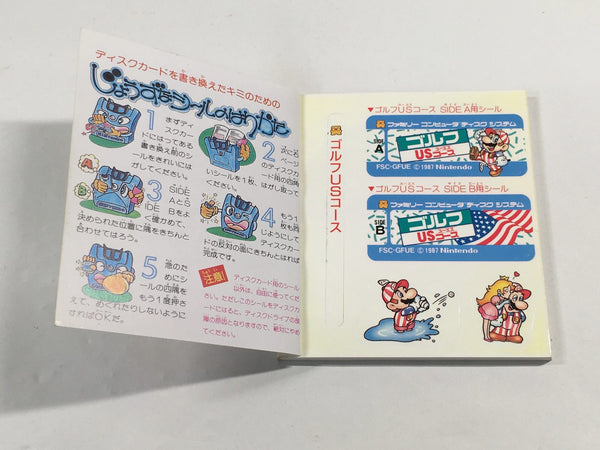 ディスクカードを書き換えたキミのための
じょうずなシールのはりかた
1 まずディス
クカード
にはってある
書き換え前のシ
ールをきれいには
がしてください。
2 次に右
ページ
のディス
カード用の四隅
いシールを1枚、
はがし取って
3 SIDE
AとS
IDE Bをよ
く確かめて、
決められた位置に隅をきちんと
合わせてはろう。
4 もう1
枚も同
じようにして
ディスクカー
ドの反対の面にきちんとはれば
完成です。
5 念のた
めにシ
ールの四隅を
もう1度押さ
えて、めくれたりしないように
すればOKだ。
注意!
ディスクカード用のシール
以外は、自由に使ってくだ
さい。ただしこのシールをディスクカ
ードにはると、ディスクドライブの故
障の原因となりますので、絶対にやめ
てください。
ゴルフUSコース
▼ゴルフUSコース SIDE A用シール
ファミリー コンピュータ ディスク システム
SIDE A
ゴルフ
USコース
FSC-GFUE © 1987 Nintendo
▼ゴルフUSコース SIDE B用シール
ファミリー コンピュータ ディスク システム
SIDE B
ゴルフ
USコース
FSC-GFUE © 1987 Nintendo
A
B